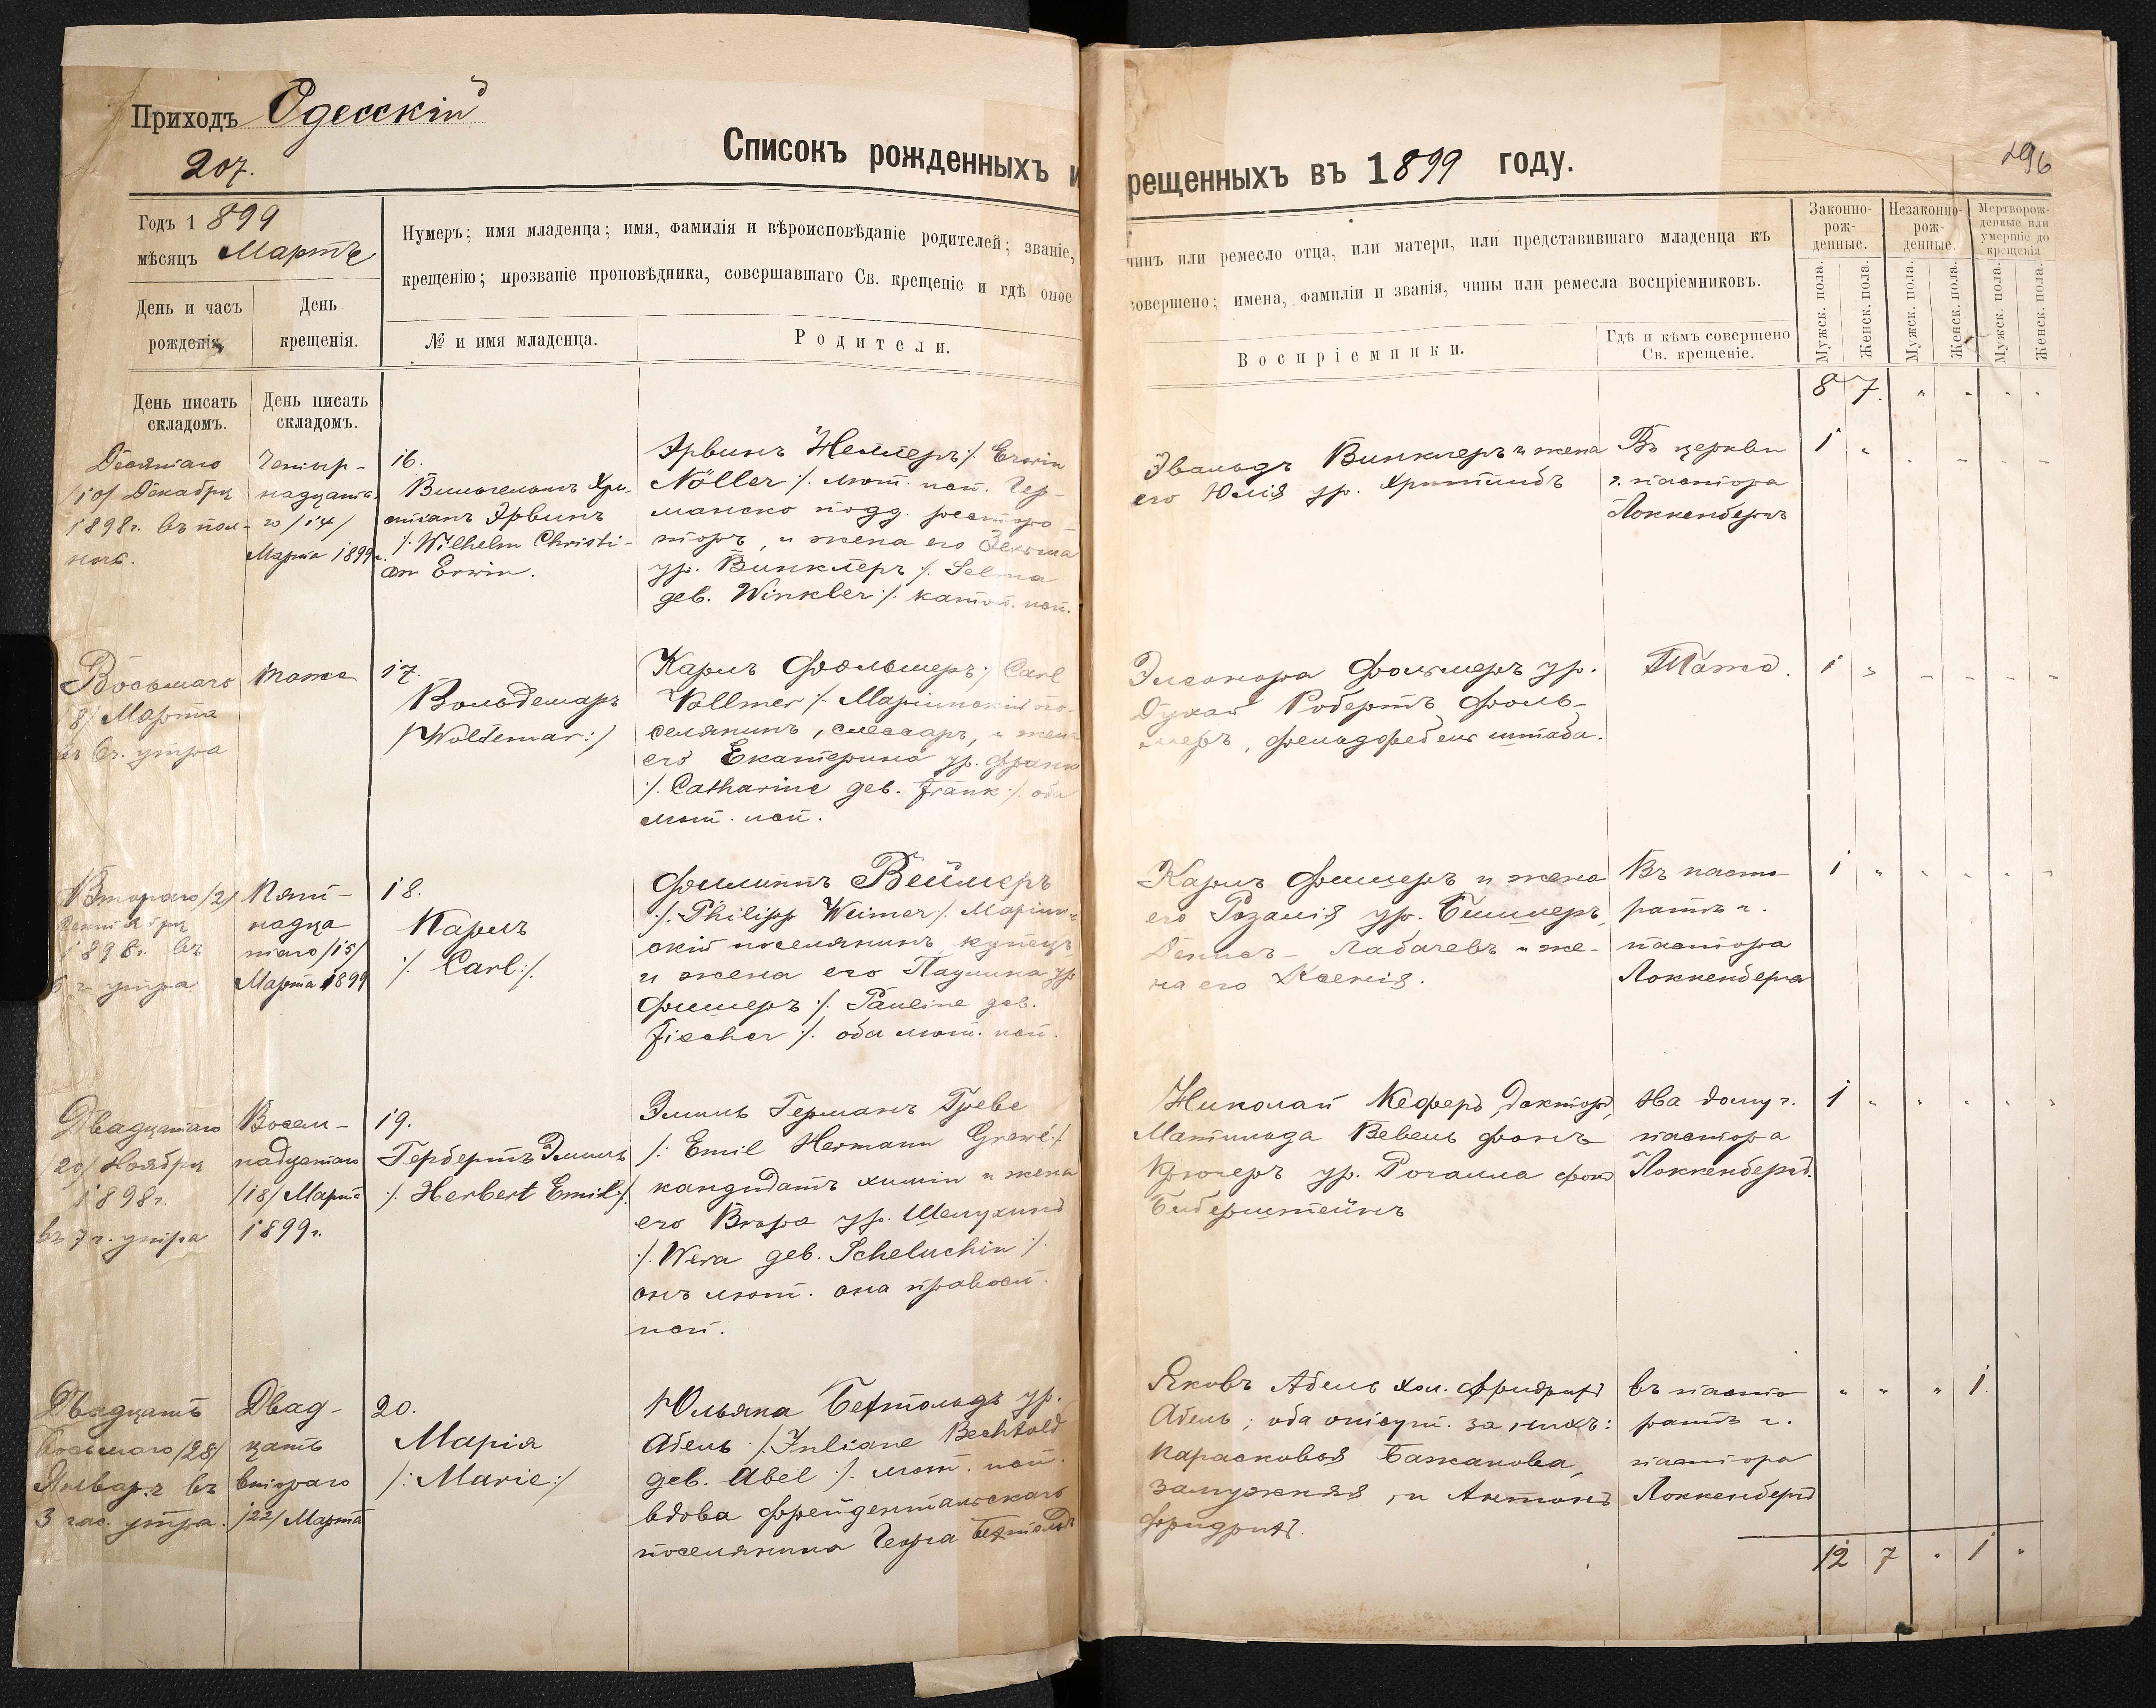 Приходъ Одесскій
207.
Списокъ рожденныхъ и
рещенныхъ въ 1899 году.
296
Годъ 1899
мѣсяцъ Мартъ
Нумеръ; имя младенца; имя, фамилія и вѣроисповѣданіе родителей; званіе,
крещенію; прозваніе проповѣдника, совершавшаго Св. крещеніе и гдѣ оное
чинъ или ремесло отца, или матери, или представившаго младенца къ
совершено; имена, фамиліи и званія, чины или ремесла воспріемниковъ.
Законно-
рож-
денные.
Незаконно-
рож-
денные.
Мертворож-
денные или
умершіе до
крещенія
Мужск. пола.
Женск. пола.
Мужск. пола.
Женск. пола.
Мужск. пола.
Женск. пола.
День и часъ
рожденія,
День
крещенія.
№ и имя младенца.
Родители.
Воспріемники.
Гдѣ и кѣмъ совершено
Св. крещеніе.
День писать
складомъ.
День писать
складомъ.
8 7. " " " "
Десятаго
/10/ Декабря
1898 г. въ пол-
ночь.
Четыр-
надцата-
го /14/
Марта 1899 г.
16.
Вильгельмъ Хри-
стіанъ Эрвинъ
/. Wilhelm Christi-
an Erwin.
Эрвинъ Неллеръ /. Erwin
Nöller /. лют. исп. Гер-
манско подд. реставра-
торъ, и жена его Зельма
ур. Винклеръ /. Selma
geb. Winkler /. катол. исп.
Эвальдъ Винклеръ и жена
его Юлія ур.
Въ церкви
г. пастора
Локкенбергъ
1 "
Восьмаго
/8/ Марта
въ 6 ч. утра
тоже
17.
Вольдемаръ
/ Woldemar :/
Карлъ Фольмеръ /. Carl
Vollmer /. Маріинскій по-
селянинъ, слесарь, и жена
его Екатерина ур. Франк
/. Catharine geb. Frank /. оба
лют. исп.
Элеонора Фольмеръ ур.
Робертъ Фоль-
меръ, фельдфебель штаба.
Тамъ.
1 "
Втораго /2/
Сентября
1898 г. въ
6 ч. утра
Пят-
надца
таго /15/
Марта 1899
18.
Карлъ
/. Carl :/.
Филиппъ Веймеръ
/. Philipp Weimer /. Маріин-
скій поселянинъ, купецъ
и жена его Паулина ур.
Фишеръ /. Pauline geb.
Fischer /. оба лют. исп.
Карлъ Фишеръ и жена
его Розалія ур.
Денисъ Лабачевъ и же-
на его Ксенія.
Въ пасто-
ратѣ г.
пастора
Локкенберга
1 "
Двадцатаго
/20/ Ноября
1898 г.
въ 7 ч. утра
Восем-
надцатаго
/18/ Марта
1899 г.
19.
Гербертъ Эмиль
/. Herbert Emil :/.
Эмиль Германъ Греве
/: Emil Hermann Grewe /.
кандидатъ химіи и жена
его Вѣра ур. Шелухинъ
/. Wera geb. Scheluchin /.
онъ лют. она правосл.
исп.
Николай Кеферъ, докторъ,
Матильда Вевель фонъ
Крюгеръ ур. Рогалла фонъ
Биберштейнъ
На дому г.
пастора
Локкенбергъ.
1 "
Двадцать
восьмаго /28/
Января въ
3 час. утра.
Двад-
цать
втораго
/22/ Марта
20.
Марія
/: Marie :/
Юльяна Бехтольдъ ур.
Абель /. Juliane Bechtold
geb. Abel /. лют. исп.
вдова Фрейдентальскаго
поселянина Георга Бехтольдъ
Яковъ Абель хол. Фридрихъ
Абель; оба отсут. за нихъ:
Парасковья Бажанова,
замужняя, и Антонъ
Фридрихъ.
въ пасто-
ратѣ г.
пастора
Локкенбергъ
" " " 1.
12 7 " 1 "